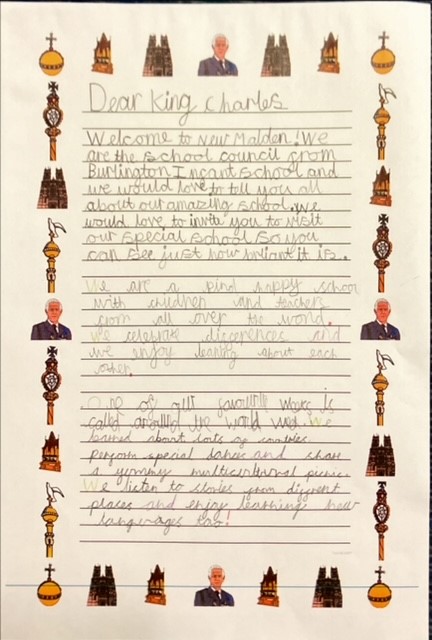 Dear King Charles
Welcome to New Malden! We
are the school council from
Burlington Infant school and
we would love to tell you all
about our amazing school. We
would love to invite you to visit
our special school so you
can see just how briliant it is.
We are a kind happy school
with children and teachers
from all over the world.
We celebrate differences and
we enjoy learning about each
other.
One of our favourite weeks is
called around the world week. We
learned about lots of countries
perform special dances and share
a yummy multicultural picnic.
We listen to stories from different
places and enjoy learning new
languages too!